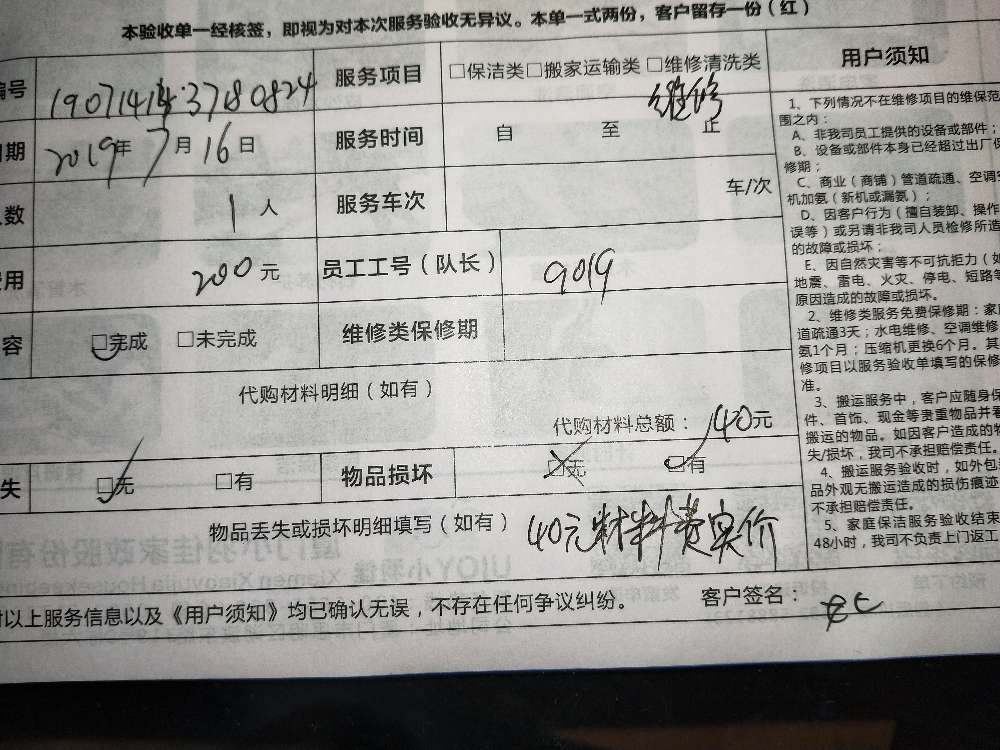 本验收单一经核签，即视为对本次服务验收无异议。本单一式两份，客户留存一份（红）
编号 服务项目 □保洁类□搬家运输类 □维修清洗类
维修
期 2019年 7月 16日 服务时间 自 至 止
数 1人 服务车次 车/次
费用 200元 员工工号（队长） 9019
容 □完成 □未完成 维修类保修期
代购材料明细（如有）
代购材料总额：40元
失 □无 □有 物品损坏 □无 □有
物品丢失或损坏明细填写（如有） 40元材料费实价
以上服务信息以及《用户须知》均已确认无误，不存在任何争议纠纷。 客户签名：
用户须知
1、下列情况不在维修项目的维保范
围之内：
A、非我司员工提供的设备或部件；
B、设备或部件本身已经超过出厂保
修期；
C、商业（商铺）管道疏通、空调
机加氨（新机或漏氨）；
D、因客户行为（擅自装卸、操作
误等）或另请非我司人员检修所造
的故障或损坏；
E、因自然灾害等不可抗拒力（如
地震、雷电、火灾、停电、短路等
原因造成的故障或损坏。
2、维修类服务免费保修期：家
道疏通3天；水电维修、空调维修
氨1个月；压缩机更换6个月。其
修项目以服务验收单填写的保修
准。
3、搬运服务中，客户应随身保
件、首饰、现金等贵重物品并
搬运的物品。如因客户造成的
失/损坏，我司不承担赔偿责任。
4、搬运服务验收时，如外包
品外观无搬运造成的损伤痕迹
不承担赔偿责任。
5、家庭保洁服务验收结束
48小时，我司不负责上门返工